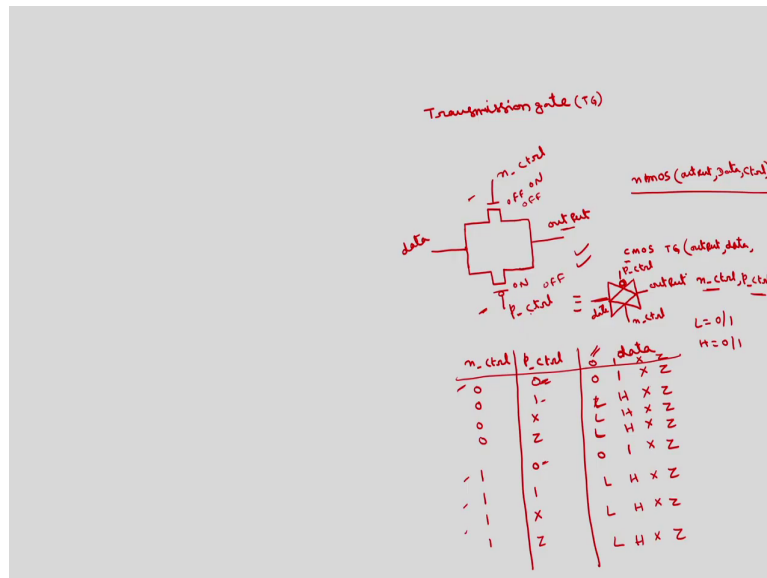 Transmission gate (TG)
n_ctrl
OFF ON
OFF
nmos (output, Data, Ctrl)
output
data
cmos TG (output, data,
n_ctrl, p_ctrl
ON OFF
p_ctrl
p_ctrl
output
data
n_ctrl
L = 0/1
H = 0/1
n_ctrl p_ctrl data
0 1 X Z
0 0 0 1 X Z
0 1 L H X Z
0 X L H X Z
0 Z L H X Z
1 0 0 1 X Z
1 1 L H X Z
1 X L H X Z
1 Z L H X Z